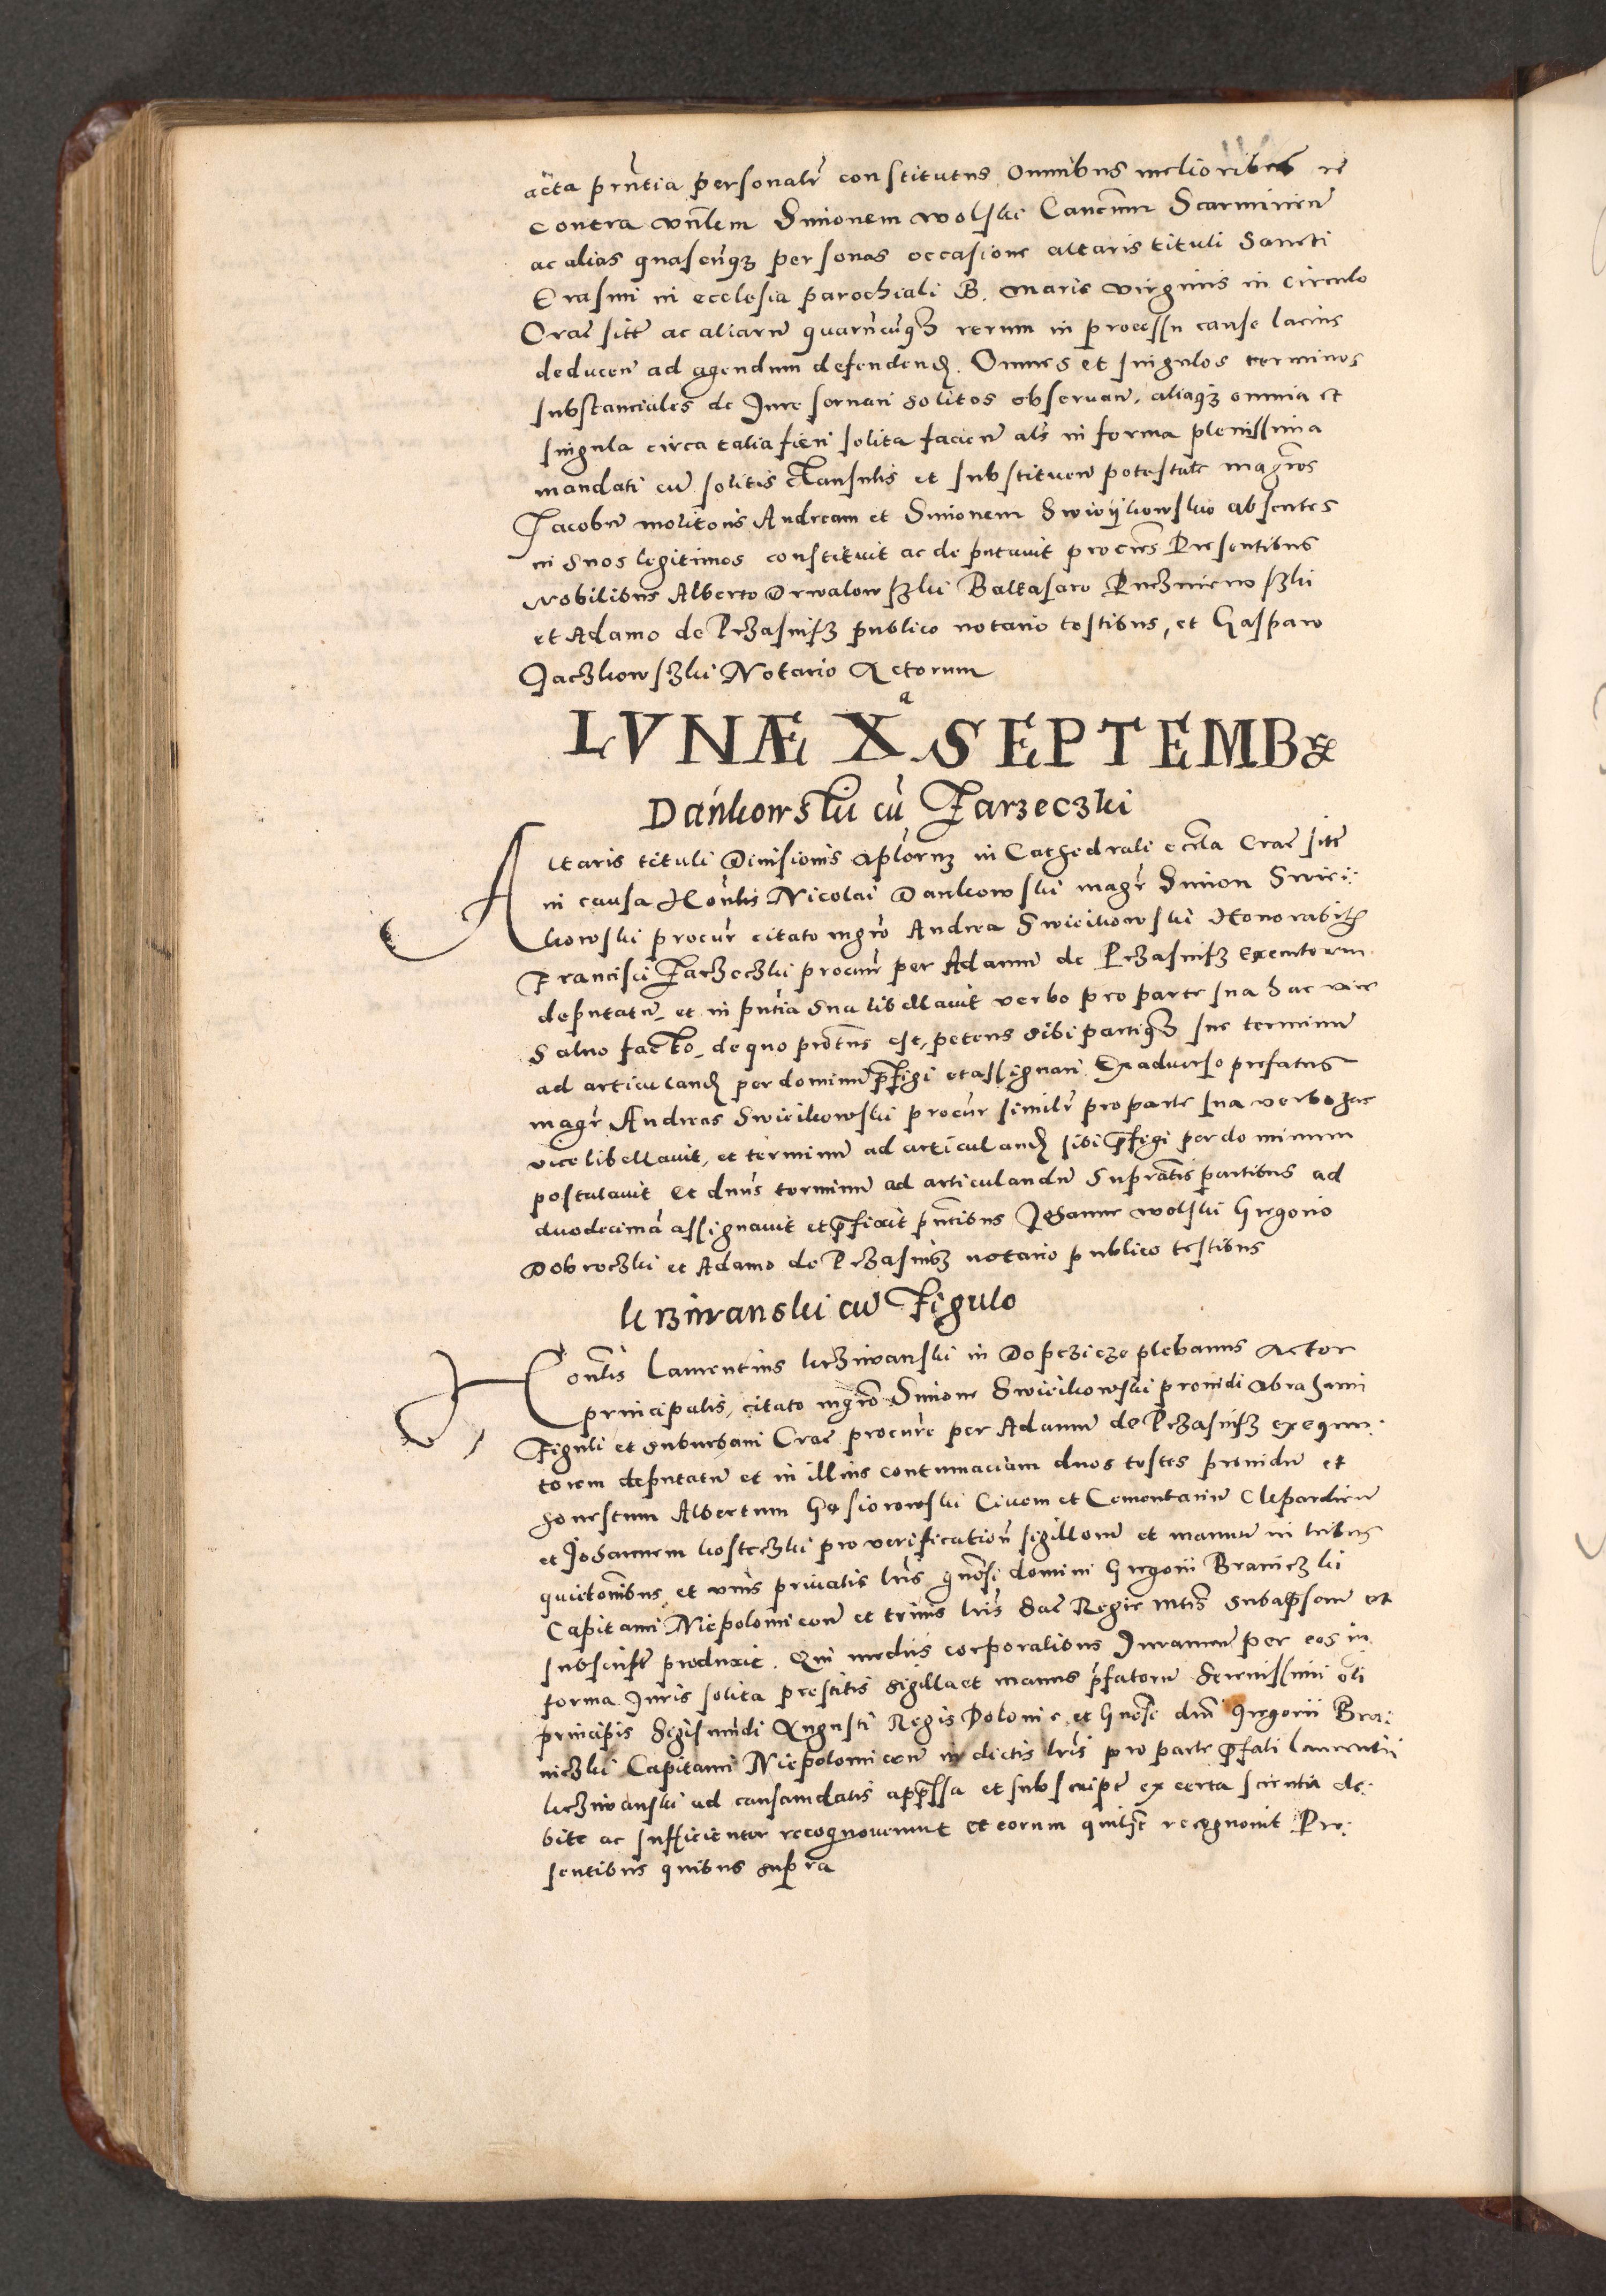 acta pñtia personalr̃ constitutus Omnibus melioribus re
contra vñlem Simonem wolski Canc̃um Scarmirien̄
ac alias quascũqȝ personas occasione altaris tituli Sancti
Erasmi in ecclesia parochiali B. Marie virginis in circulo
Crac̃ site ac aliarũ quarũcũqȝ rerum in processu cause lacius
deducen̄ ad agendum defendenđ. Omnes et singulos terminos
substanciales de Jure seruari solitos obseruan̄, aliaqȝ omnia et
singula circa talia fieri solita facien̄ als̃ in forma plenissima
mandati cũ solitis clausulis et substituen̄ potestate magr̃os
Jacobũ molitoris Andream et Simonem Swiijkowskie absentes
in suos legitimos constituit ac deputauit procr̃es Presentibus
Nobilibus Alberto Drwalowsȝki Baltasaro Puchnirwsȝki
et Adamo de Prȝasnisȝ publico notario testibus, et Gasparo
Jacȝkowsȝki Notario Actorum
LVNÆ Xª SEPTEMBꝶ
Dankowski cũ Zarzeczki
Altaris tituli Diuisionis Apl̃orũ in Cathedrali eccl̃a Crac̃ site
in causa Hon̄lis Nicolai Dankowski magr̃ Simon Swiei:
kowski procur̃ citato mgr̃o Andrea Swieikowski Honorabil̃
Francisci Zarȝecȝki procur̃ per Adamũ de Prȝasnisȝ Executorem
deputatũ, et in pñtia sua libellauit verbo pro parte sua hac vice
Saluo facto, de quo prot̃us est, petens sibi partiqȝ sue terminũ
ad articulanđ per dominũ p̃figi et assignari. Ex aduerso prefatus
magr̃ Andreas Swieikowski procur̃ similr̃ pro parte sua verbo hac
vice libellauit, et terminũ ad articulanđ sibi p̃figi per dominum
postulauit Et dñus terminũ ad articulandũ supratis partibus ad
duodecimã assignauit et p̃fixit pñtibus Johanne wolski Gregorio
Dobrocȝki et Adamo de Prȝasnisȝ notario publico testibus
krziwanski cũ Figulo
Hon̄lis Laurentius krcȝiwanski in Dopcȝicȝe plebanus Actor
principalis, citato mgr̃o Simone Swieikowski prouidi Abrahami
Figuli et suburbani Crac̃ procur̃e per Adamũ de Prȝasnisȝ exequu:
torem deputatũ et in illius contumaciam duos testes prouidũ et
honestum Albertum Gąsiorowski Ciuem et Cementariũ Clepardien̄
et Johannem kostecȝki pro verificatioñ sigillorũ et manuũ in tribus
quiton̄ibus et vnis priuatis lris̃ gn̄osi domini Gregorii Branicȝki
Capitanei Niepolomicen̄ et trinis lris̃ Sac̃ Regie mtis̃ subapp̃sarũ et
subscript̃ produxit. Qui mediis corporalibus Juramen̄ per eos in
forma Juris solita prestitis sigilla et manus p̃fatorũ Serenissimi oli
principis Sigismũdi Augusti Regis Polonie, et Gn̄osi dñi Gregorii Bra:
nicȝki Capitanei Niepolomicen̄ in dictis lris̃ pro parte p̃fati Laurentii
krcȝiwanski ad causam datis app̃ssa et subscript̃ ex certa scientia de:
bite ac sufficienter recognouerunt et eorum quil̃t recognouit Pre:
sentibus quibus supra